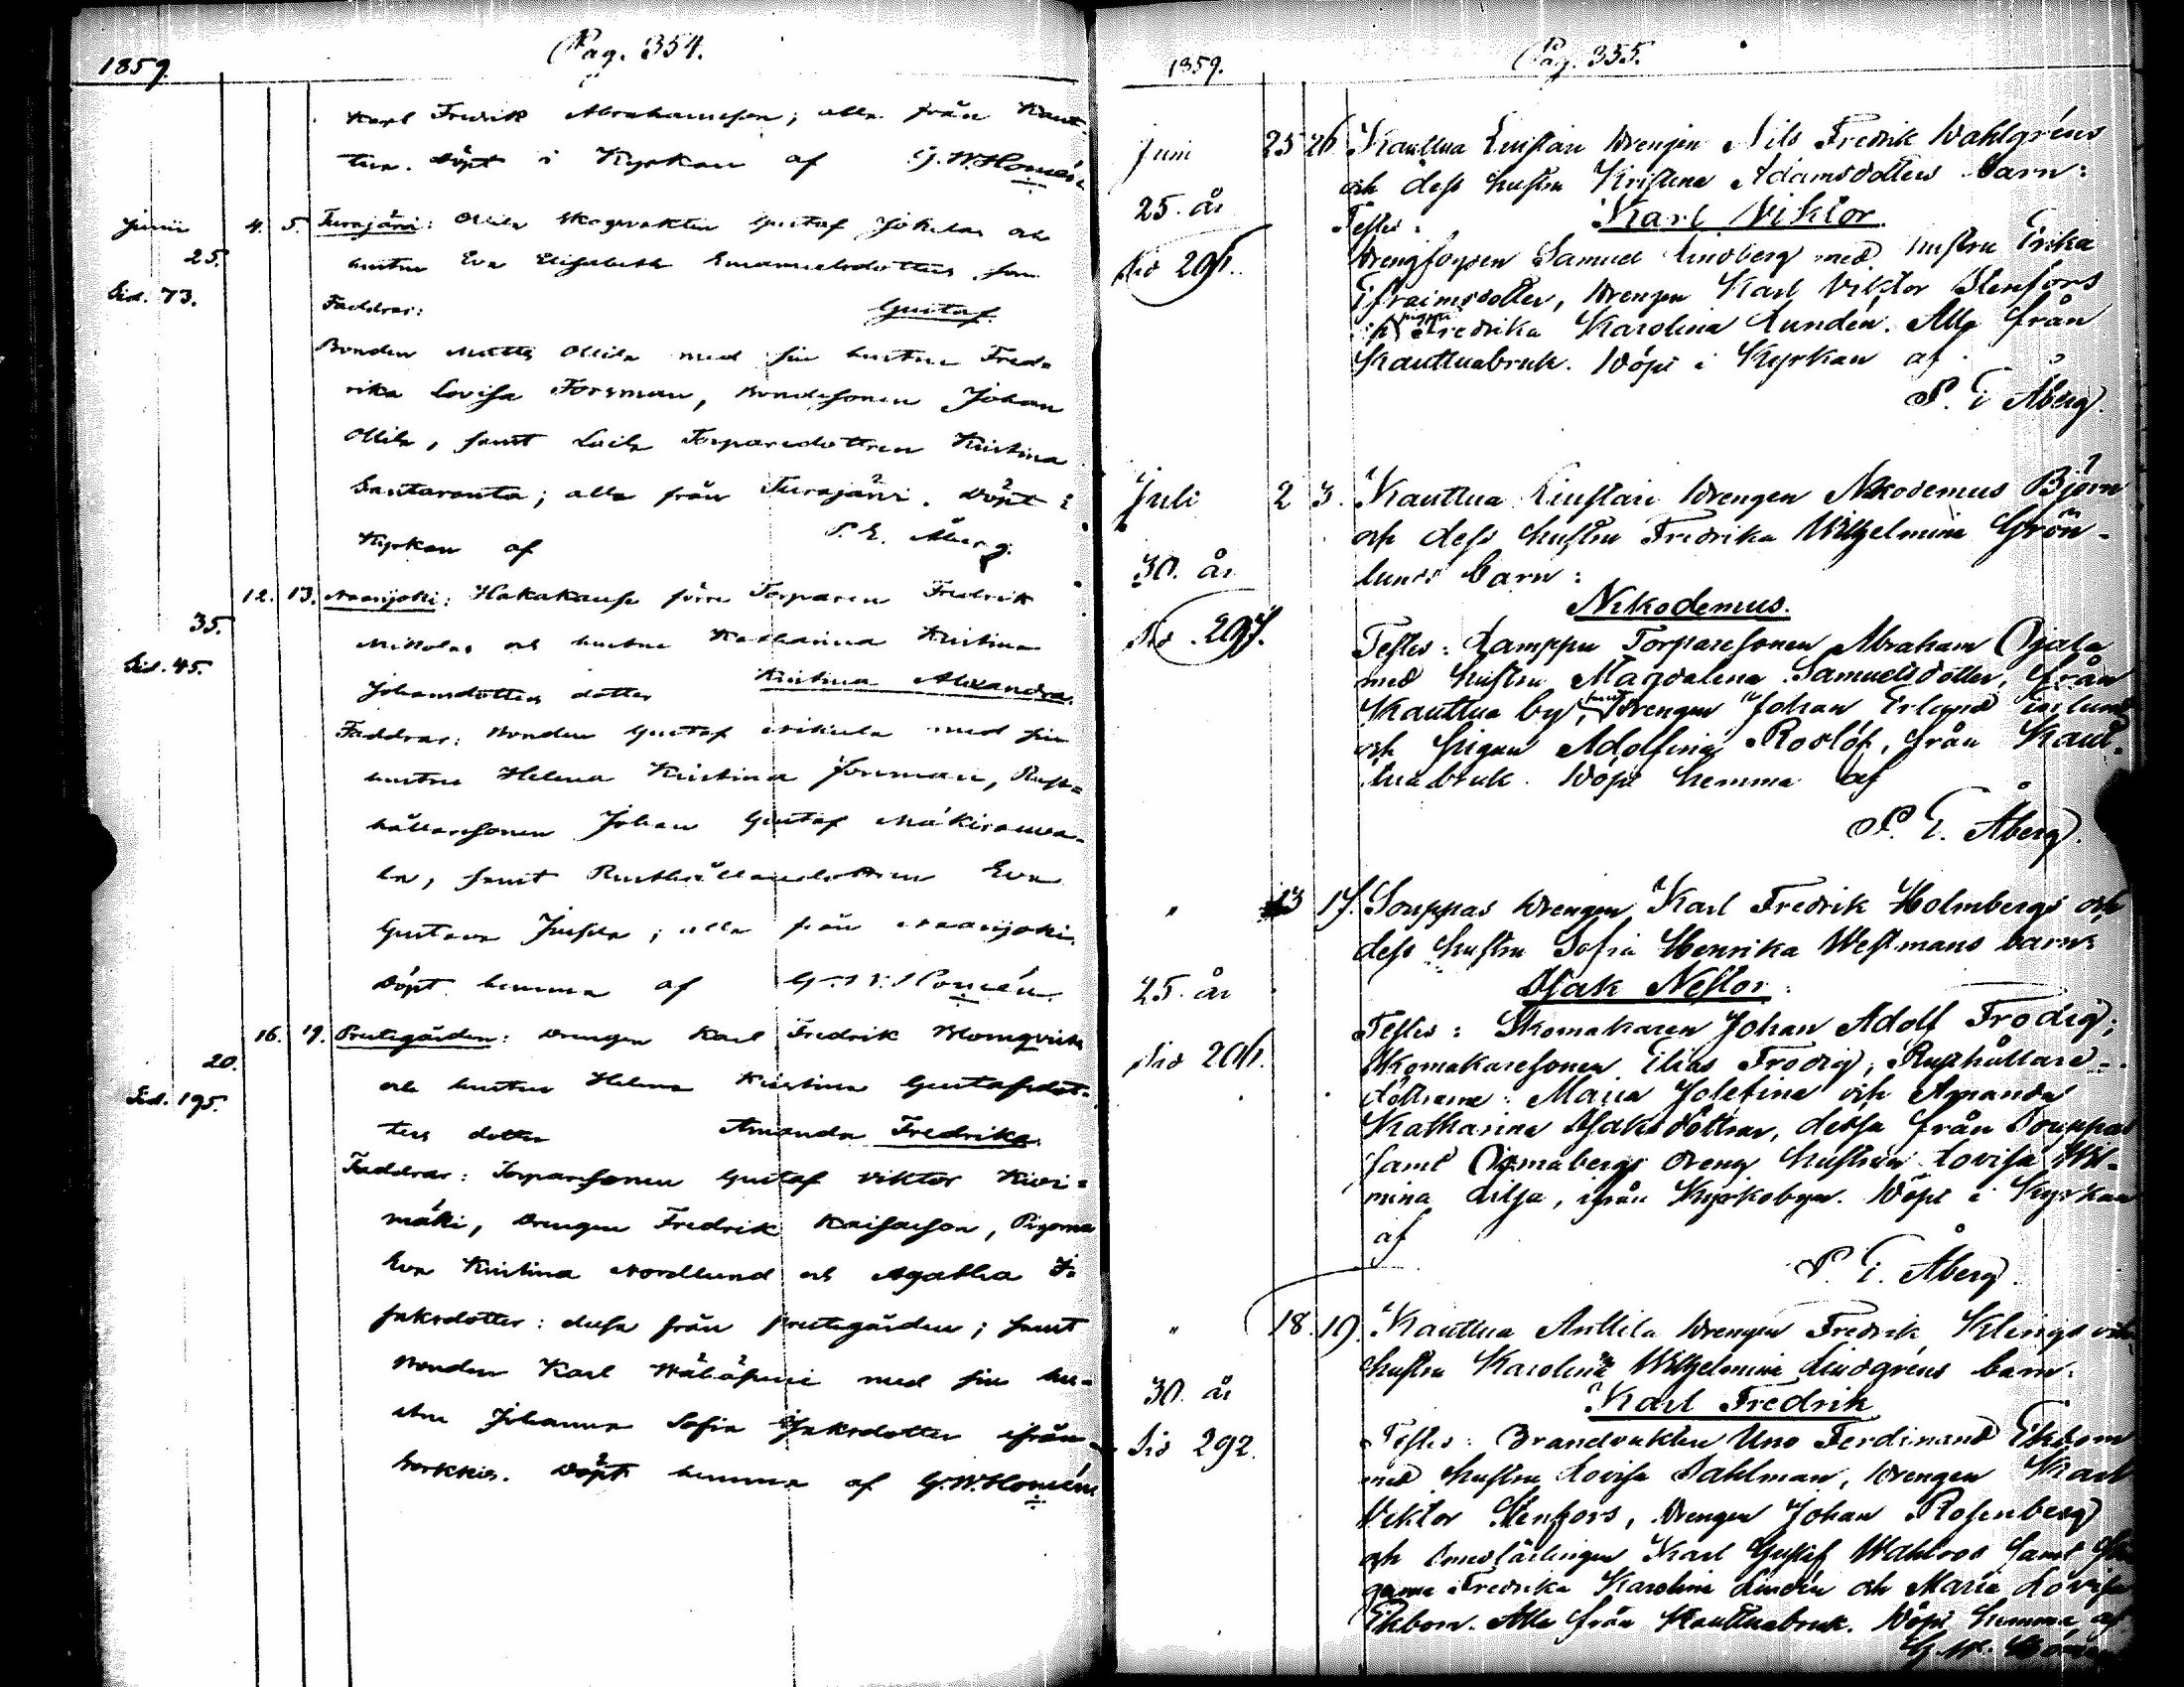 1859.
Pag. 354.
Karl Fredrik Abrahamsson; alla från Kaut-
tua. Döpt i Kyrkan af G. W. Homén
Junii 4. 5. Turajärvi: Ollila Skogvakten Gustaf Jokelas och
25. hustru Eva Elisabeth Emanuelsdotters son
Sid. 73. Faddrar: Gustaf.
Bonden Matts Ollila med sin hustru Fred-
rika Lovisa Forsman, Bondesonen Johan
Ollila, samt Torparedottren Kristina
Santaranta; alla från Turajärvi. Döpt i
Kyrkan af P. E. Åberg.
12. 13. Naarijoki: Torparen Fredrik
35. Mikkolas och hustru Katharina Kristina
Sid. 45. Johansdotters dotter Kristina Alexandra.
Faddrar: Bonden Gustaf med sin
hustru Helena Kristina Forsman, Rust-
hållaresonen Johan Gustaf
la, samt Rusthållaredottren Eva
Gustava Jussila; alla från Naarijoki.
Döpt hemma af G. W. Homén.
16. 19. Prestgården: Drengen Karl Fredrik Blomqvists
20. och hustru Helena Kristina Gustafsdot-
Sid. 195. ters dotter Amanda Fredrika.
Faddrar: Torparesonen Gustaf Viktor Kivi-
mäki, Drengen Fredrik Kaisasson, Pigorna
Eva Kristina Nordlund och Agatha I-
saksdotter: dessa från prestgården; samt
Bonden Karl med sin hu-
stru Johanna Sofia Isaksdotter ifrån
Sorkkis. Döpt hemma af G. W. Homén
1859.
Pag. 355.
Juni 25 26 Kauttua Drengen Nils Fredrik Wahlgréns
och dess hustru Kristina Adamsdotters barn:
25. år Karl Viktor.
Testes:
Sid 291. Drengfogden Samuel Lindberg med hustru Erika
Efraimsdotter, Drengen Karl Viktor Stenfors
och pigan Fredrika Karolina Lundén. Alla från
Kauttuabruk. Döpt i Kyrkan af
P. E. Åberg.
Juli 2 3. Kauttua Drengen Nikodemus Björn
och dess hustru Fredrika Wilhelmina Grön-
30. år lunds barn:
Nikodemus.
Sid. 297. Testes: Lamppu Torparesonen Abraham Ojala
med hustru Magdalena Samuelsdotter, från
Kauttua by, samt Drengen Johan Erland
och Pigan Adolfina Roslöf, från Kaut-
tuabruk. Döpt hemma af
P. E. Åberg.
" 13 17. Souppas Drengen Karl Fredrik Holmbergs och
dess hustru Sofia Henrika Westmans barn:
25. år Isak Nestor.
Testes: Skomakaren Johan Adolf Frodig;
Sid 206. Skomakaresonen Elias Frodig, Rusthållare-
döttrarne: Maria Josefina och Amanda
Katharina Isaksdöttrar, dessa från Souppas
samt Ormabergs dreng hustrun Lovisa Wil-
mina Lilja, ifrån Kyrkobyn. Döpt i Kyrkan
af
P. E. Åberg.
" 18. 19. Kauttua Anttila Drengen Fredrik Klings och
hustru Karolina Wilhelmina Lindgréns barn:
30. år Karl Fredrik
Sid 292. Testes: Brandvakten Uno Ferdinand Ekbom
med hustru Lovisa Dahlman, Drengen Karl
Viktor Stenfors, Drengen Johan Rosenberg
och Smedlärlingen Karl Gustaf Wahlroos samt Pi-
gorna Fredrika Karolina Lundén och Maria Lovisa
Ekbom. Alla från Kauttuabruk. Döpt hemma af
G. W. Homén